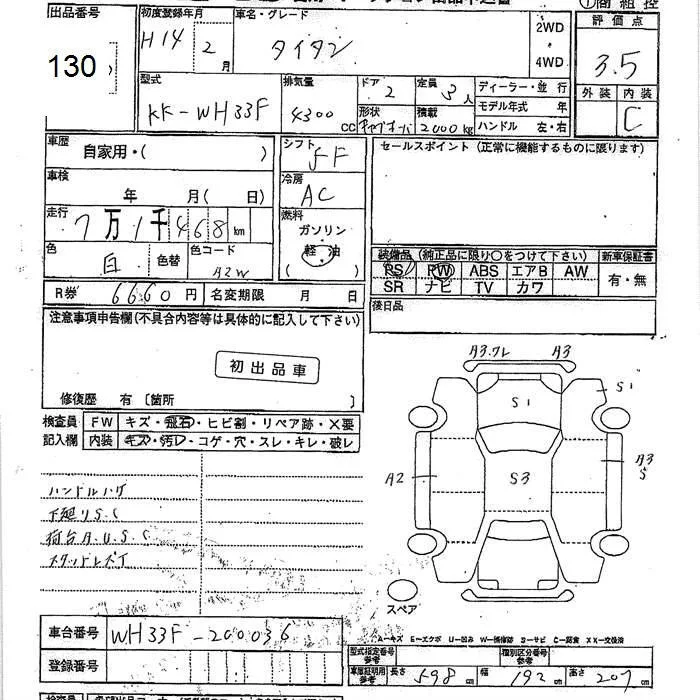 出品番号
130
初度登録年月
H14 2月
車名・グレード
タイタン
2WD
・
4WD
評価点
3.5
外装 内装
C
型式
KK-WH33F
排気量
4300cc
ドア
2
定員
3人
形状
積載
2000kg
ディーラー・並行
モデル年式 年
ハンドル 左・右
車歴
自家用・( )
シフト
5F
セールスポイント(正常に機能するものに限ります)
車検
年 月( 日)
冷房
AC
走行
7万1千468km
燃料
ガソリン
軽油
( )
色
白
色替
色コード
A2W
装備品(純正品に限り○をつけて下さい)
新車保証書
PS PW ABS エアB AW
有・無
SR ナビ TV カワ
R券 6660円
名変期限 月 日
後日品
注意事項申告欄(不具合内容等は具体的に記入して下さい)
初出品車
修復歴 有〔箇所 〕
検査員
記入欄
FW キズ・飛石・ヒビ割・リペア跡・X要
内装 キズ・汚レ・コゲ・穴・スレ・キレ・破レ
ハンドルハゲ
下廻りS.C
荷台A.U.S.C
スタッドレスT
A3.ワレ A3
S1
S1
A2
S3
A3
S
スペア
A-キズ E-エクボ U-凹み W-補修跡 S-サビ C-腐食 XX-交換済
車台番号
WH33F-200036
登録番号
型式指定番号
参考
類別区分番号
参考
車庫証明用
参考
長さ 598cm
幅 192cm
高さ 207cm